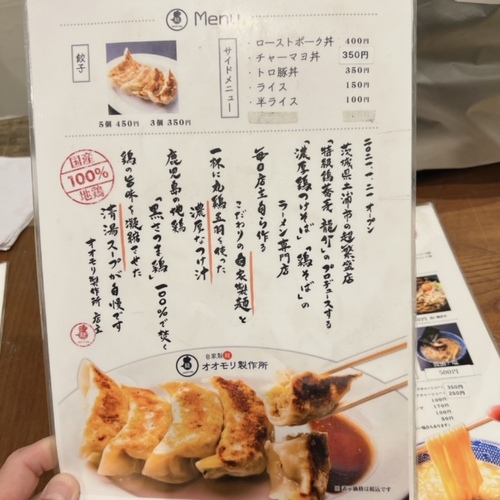 Menu
餃子
5個 450円 3個 350円
サイドメニュー
・ローストポーク丼 400円
・チャーマヨ丼 350円
・トロ豚丼 350円
・ライス 150円
・半ライス 100円
国産
100%
地鶏
二〇二一.一.二一 オープン
茨城県土浦市の超繁盛店
「特級鶏蕎麦 龍介」のプロデュースする
「濃厚鶏つけそば」「鶏そば」の
ラーメン専門店
毎日店主自ら作る
こだわりの自家製麺と
一杯に丸鶏五羽を使った
濃厚なつけ汁
鹿児島の地鶏
「黒さつま鶏」一〇〇%で焚く
鶏の旨味を凝縮させた
清湯スープが自慢です
オオモリ製作所 店主
自家製麺
オオモリ製作所
表示価格は税込です
500円
350円
250円
100円
170円
100円